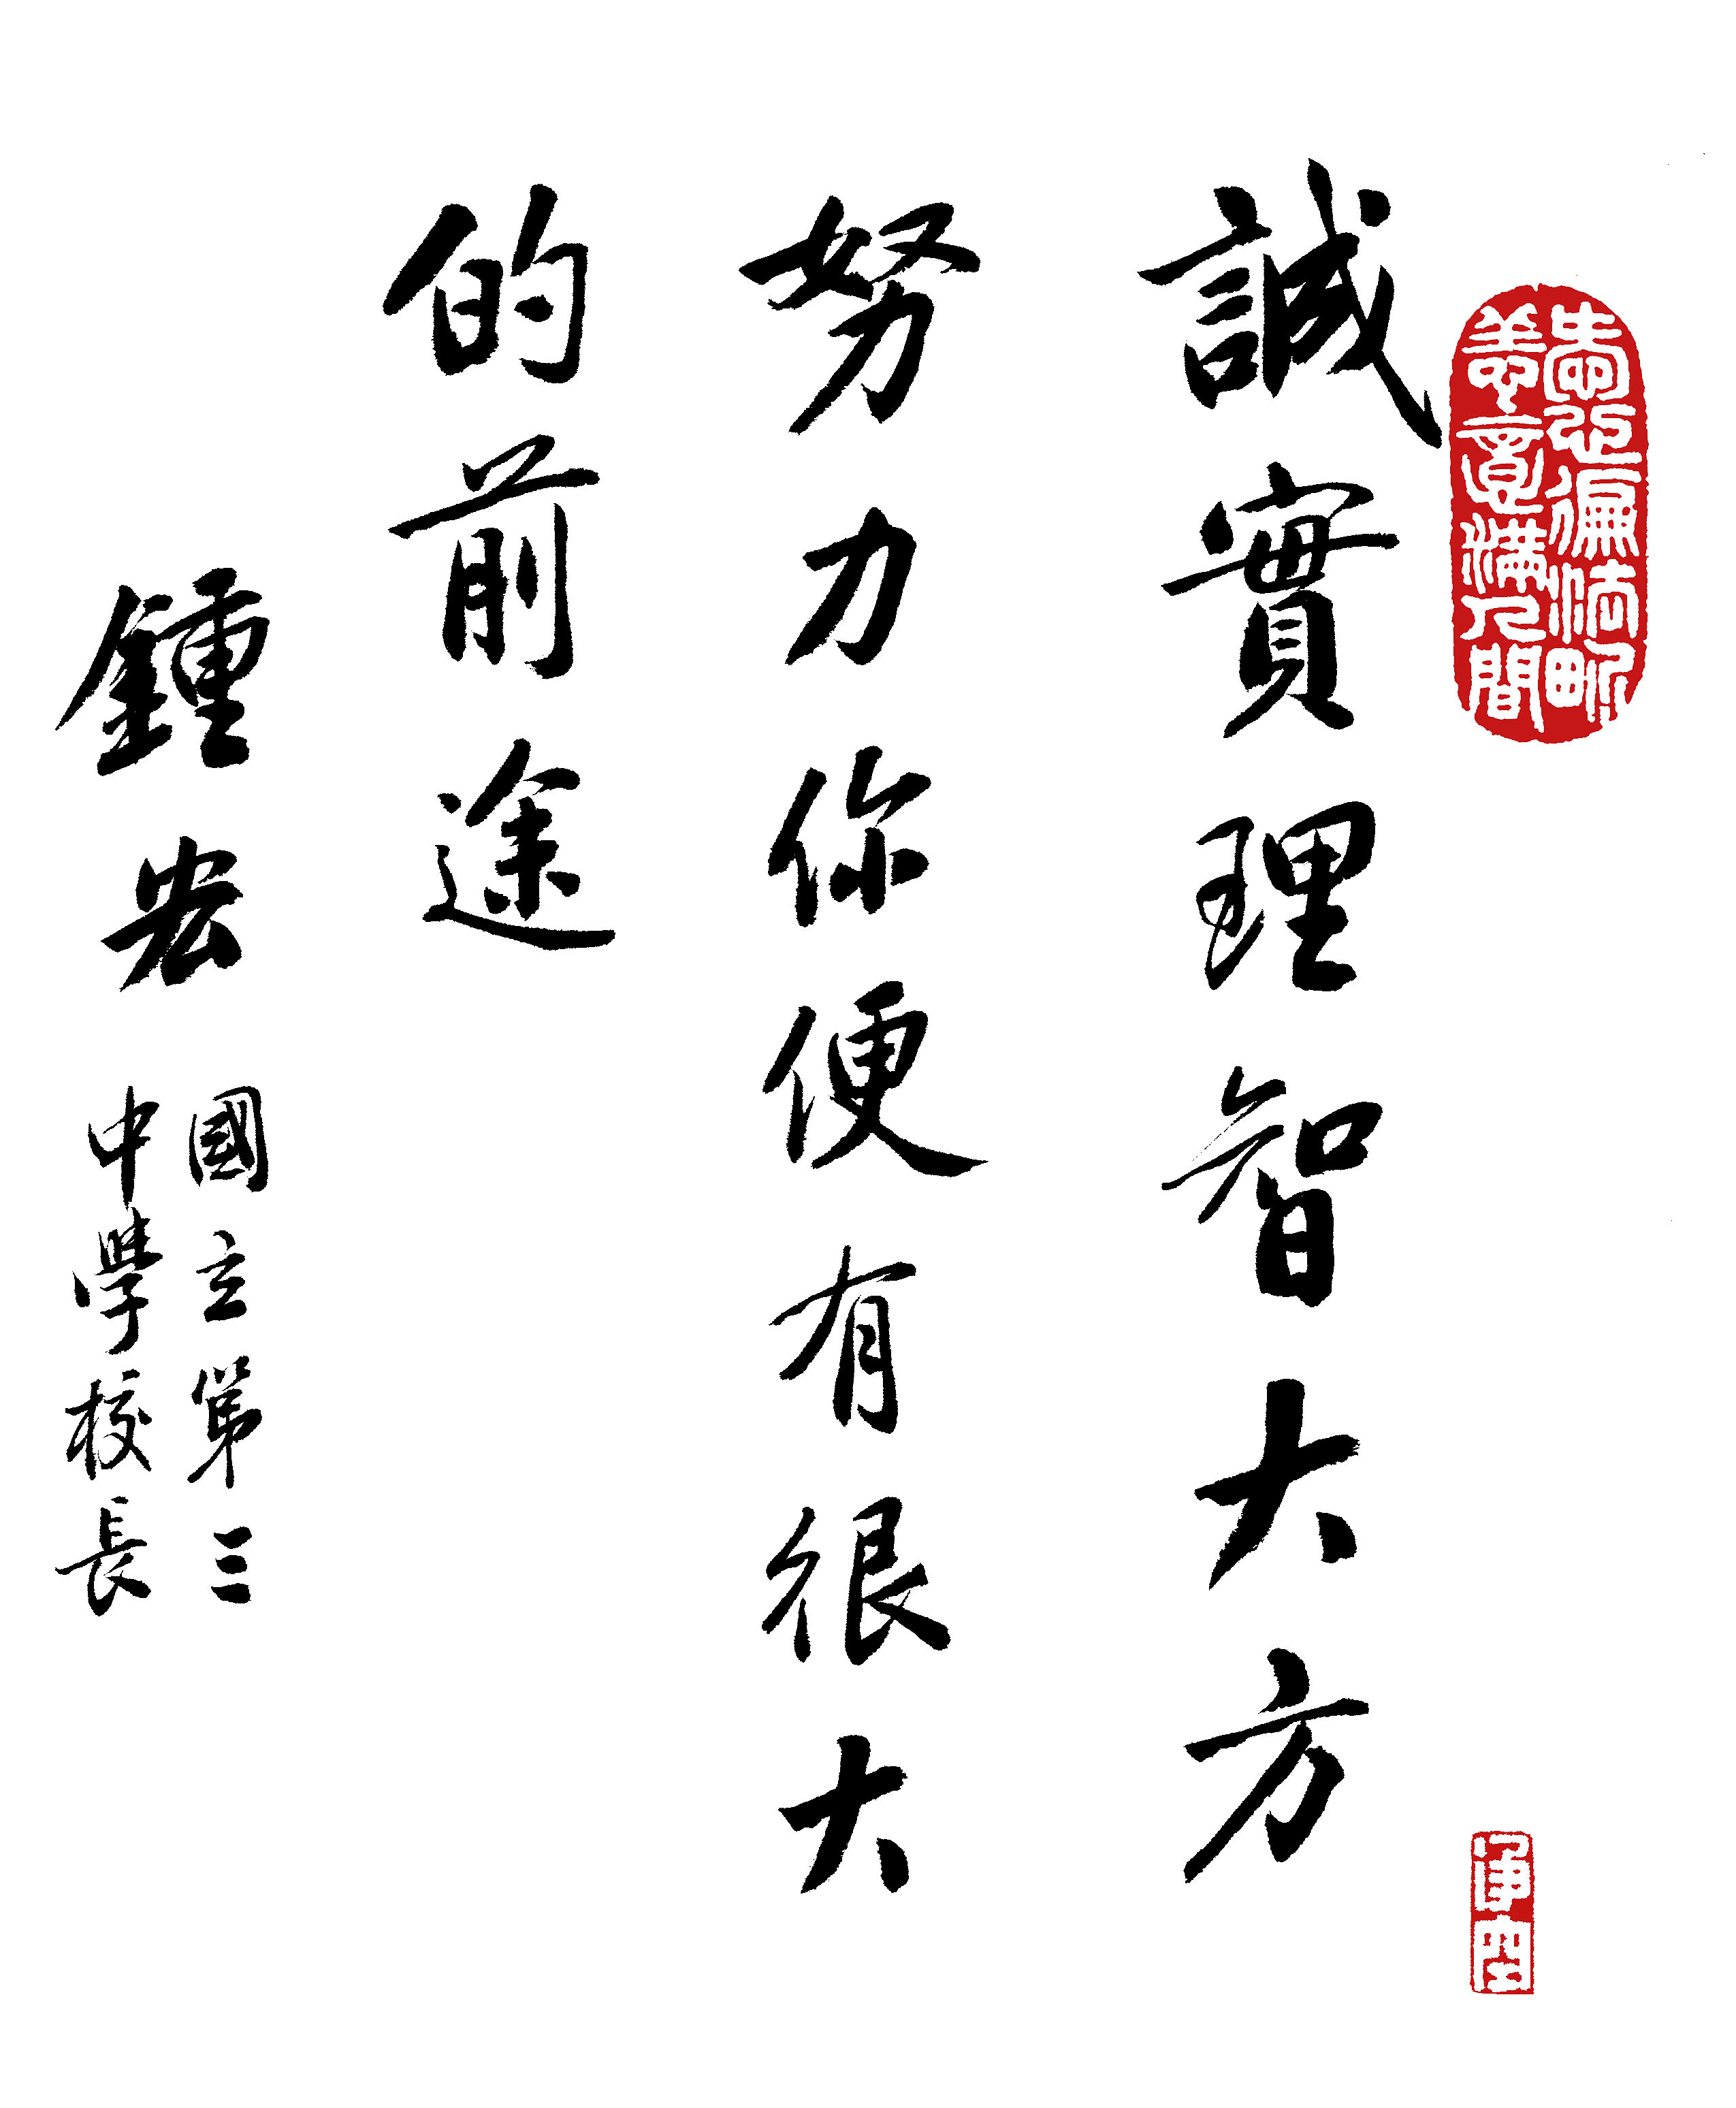 意滿人間
誠實理智大方
努力你便有很大
的前途
鍾宏
國立第三
中學校長